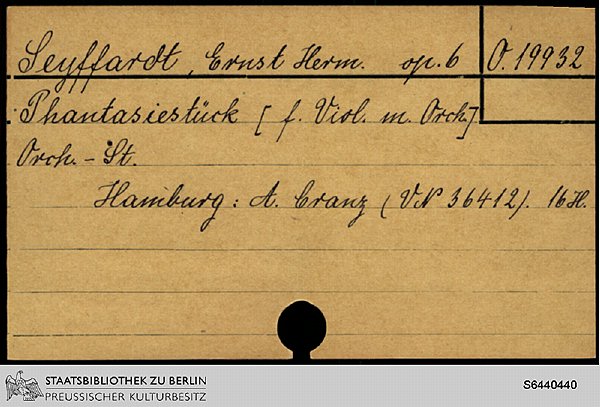 Seyffardt, Ernst Herm. op. 6 O. 19932
Phantasiestück [ f. Viol. m. Orch]
Orch. - St.
Hamburg : A. Cranz ( VN 36412). 16 H.
STAATSBIBLIOTHEK ZU BERLIN
PREUSSISCHER KULTURBESITZ
S6440440